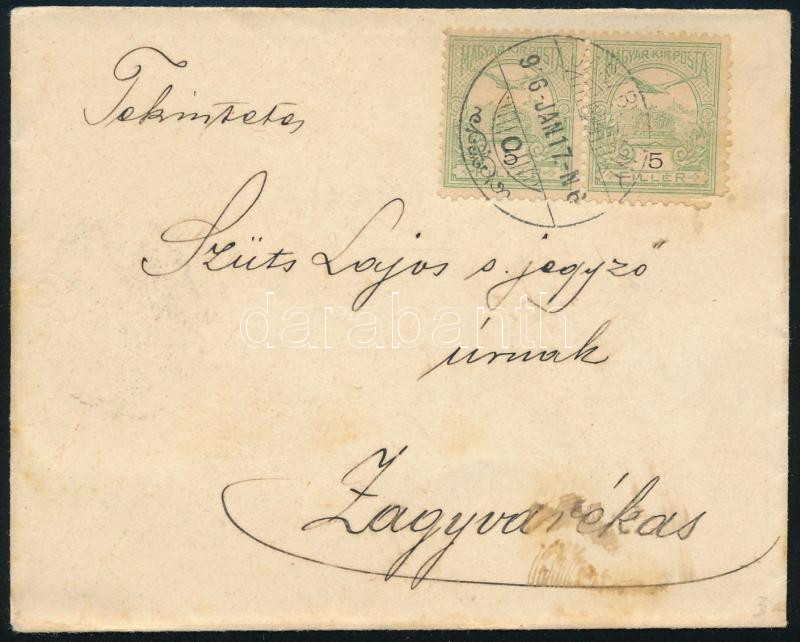 MAGYAR KIR. POSTA MAGYAR KIR. POSTA
96 JAN. 17. - N 6
5
FILLÉR
Tekintetes
Szüts Lajos s. jegyző
úrnak
Zagyvarékas
darabanth